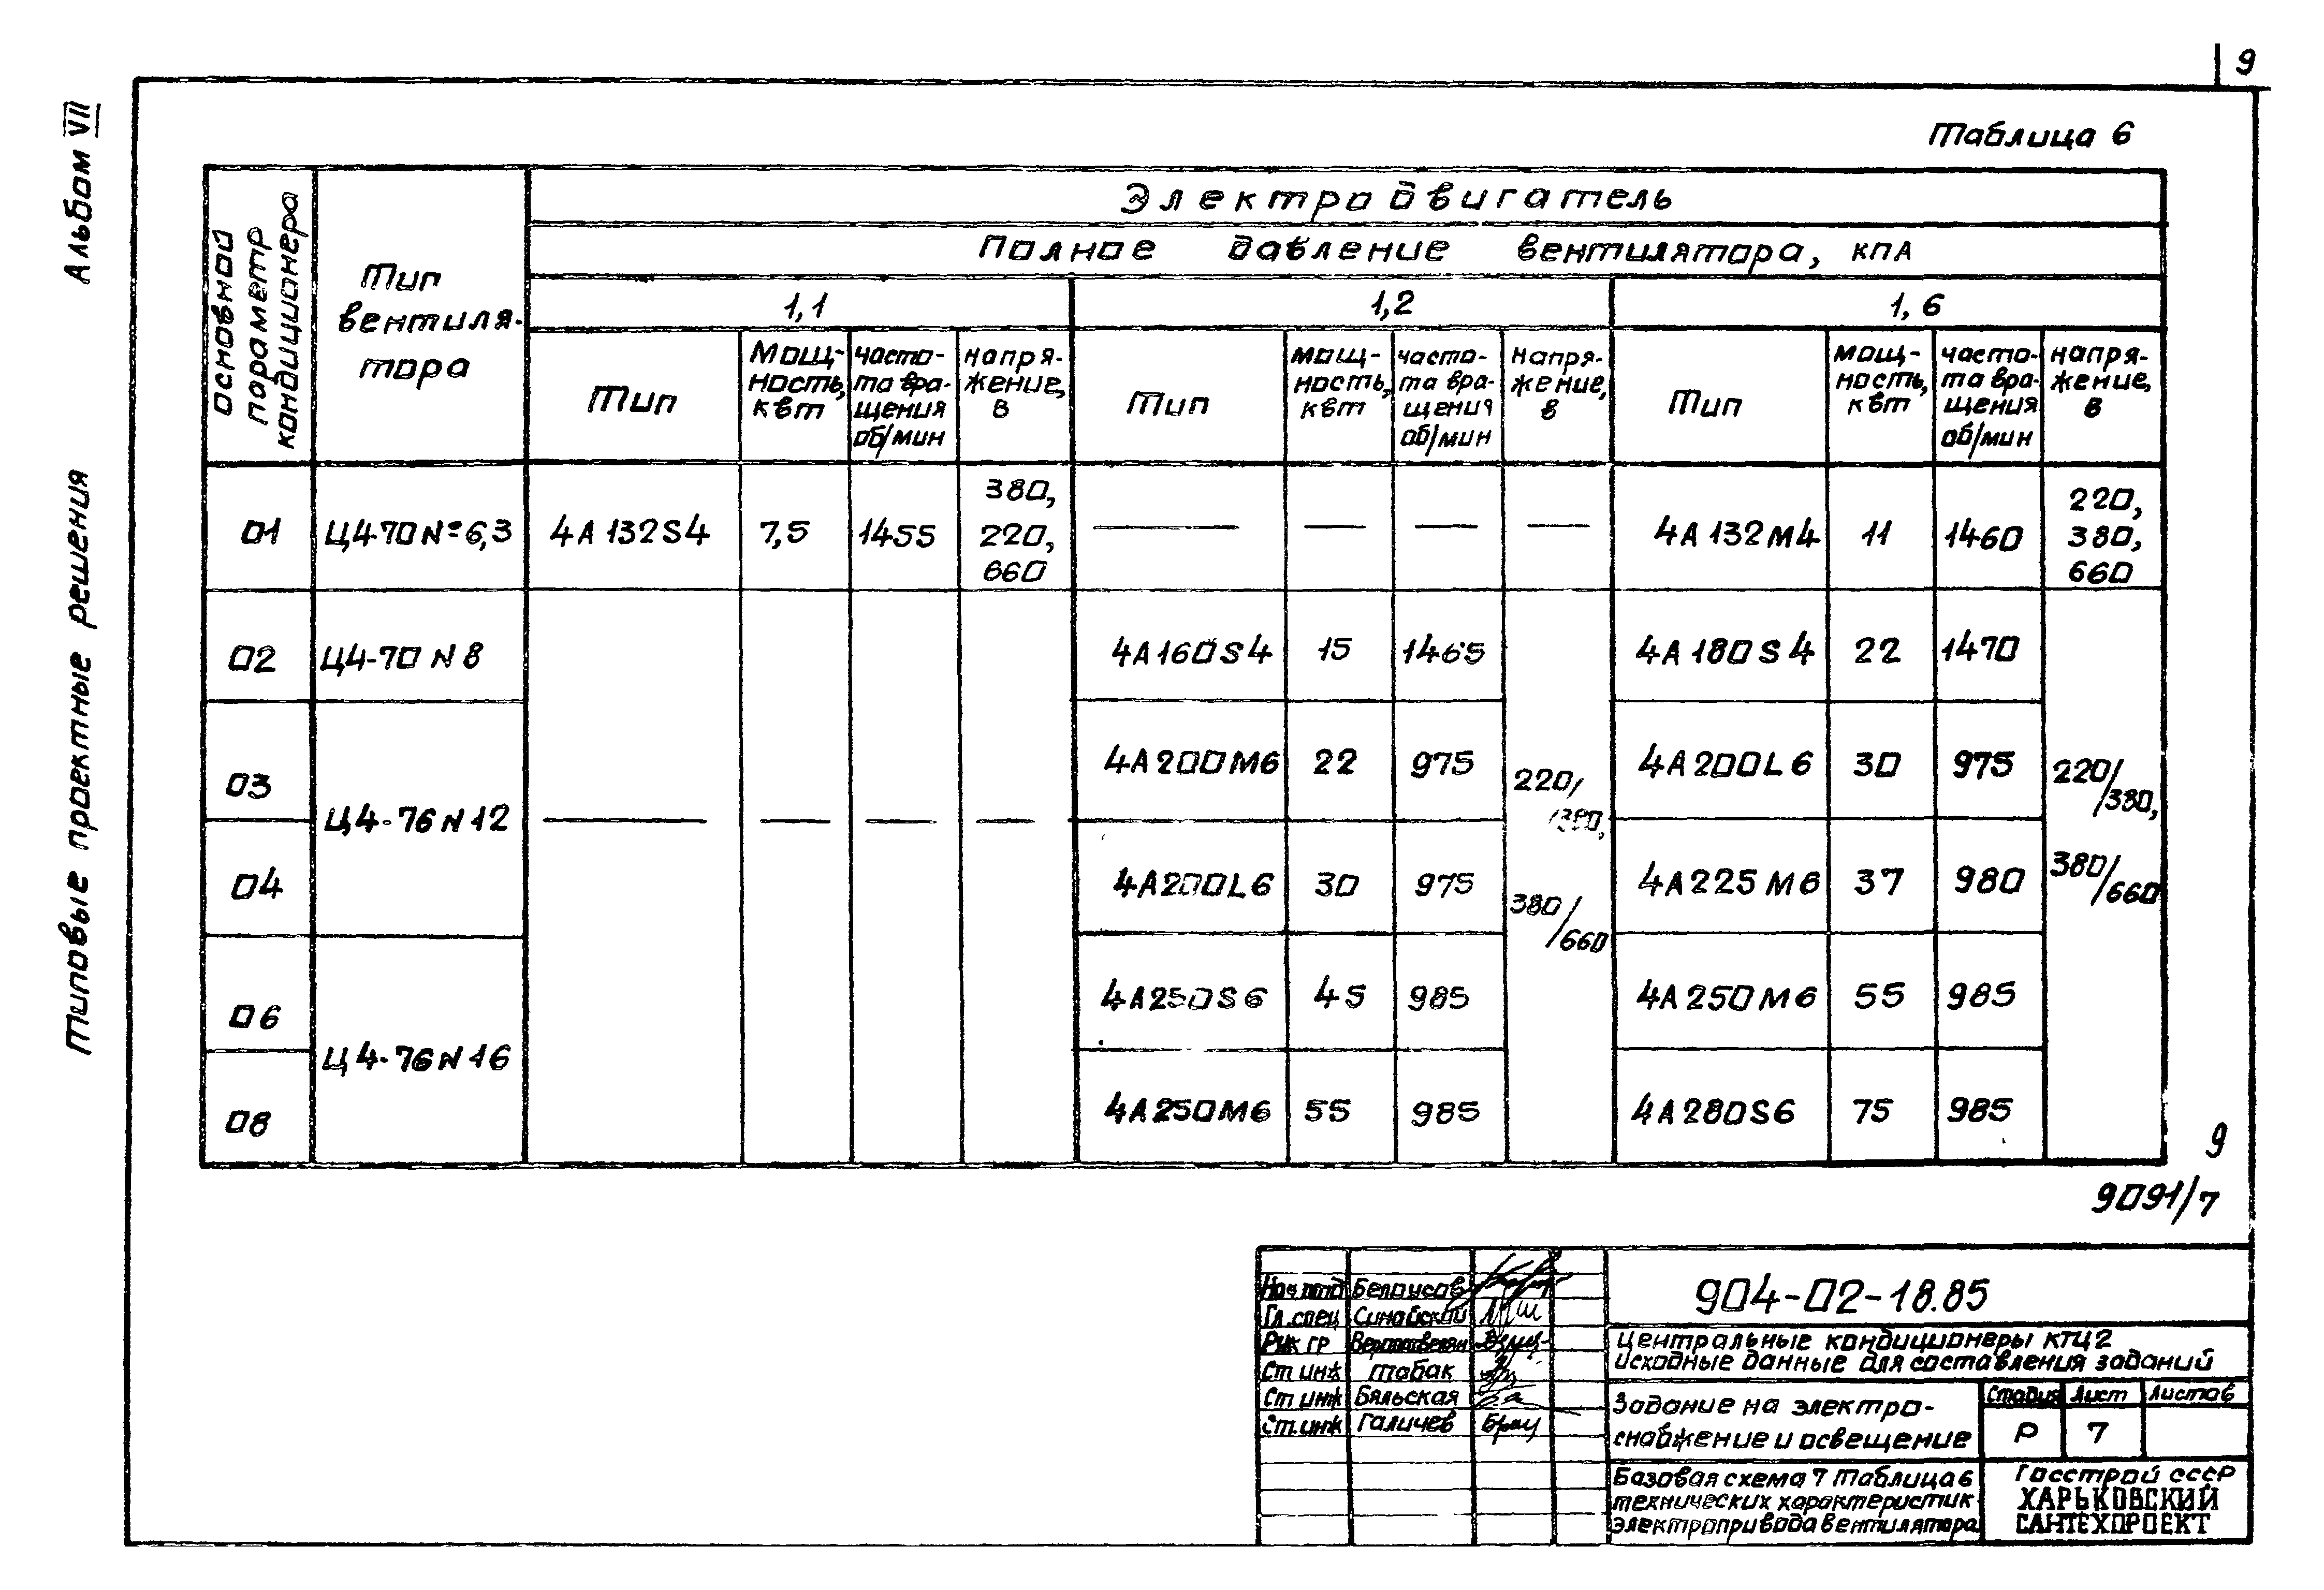 9
Альбом VII
Типовые проектные решения
Таблица 6
основной параметр кондиционера
Тип вентиля-тора
Электродвигатель
Полное давление вентилятора, кПА
1,1
1,2
1,6
Тип
Мощ-ность, квт
часто-та вра-щения об/мин
напря-жение, в
Тип
мощ-ность, квт
часто-та вра-щения об/мин
напря-жение, в
Тип
мощ-ность, квт
часто-та вра-щения об/мин
напря-жение, в
01 Ц4-70 №6,3 4А132S4 7,5 1455 380, 220, 660 — — — — 4А132М4 11 1460 220, 380, 660
02 Ц4-70 N8 4А160S4 15 1465 4А180S4 22 1470
03 4А200М6 22 975 4А200L6 30 975
Ц4-76 N12 — — — — 220/380, 220/380,
04 4А200L6 30 975 4А225М6 37 980
380/660 380/660
06 4А250S6 45 985 4А250М6 55 985
Ц4-76 N16
08 4А250М6 55 985 4А280S6 75 985
9
9091/7
Нач отд Белоусов
Гл.спец Синайский
Рук гр
Ст инж Табак
Ст инж Бяльская
Ст.инж Галичев
904-02-18.85
Центральные кондиционеры КТЦ2
Исходные данные для составления заданий
Задание на электро-
снабжение и освещение
Стадия Лист Листов
Р 7
Базовая схема 7 Таблица 6
технических характеристик
электропривода вентилятора
Госстрой СССР
ХАРЬКОВСКИЙ
САНТЕХПРОЕКТ